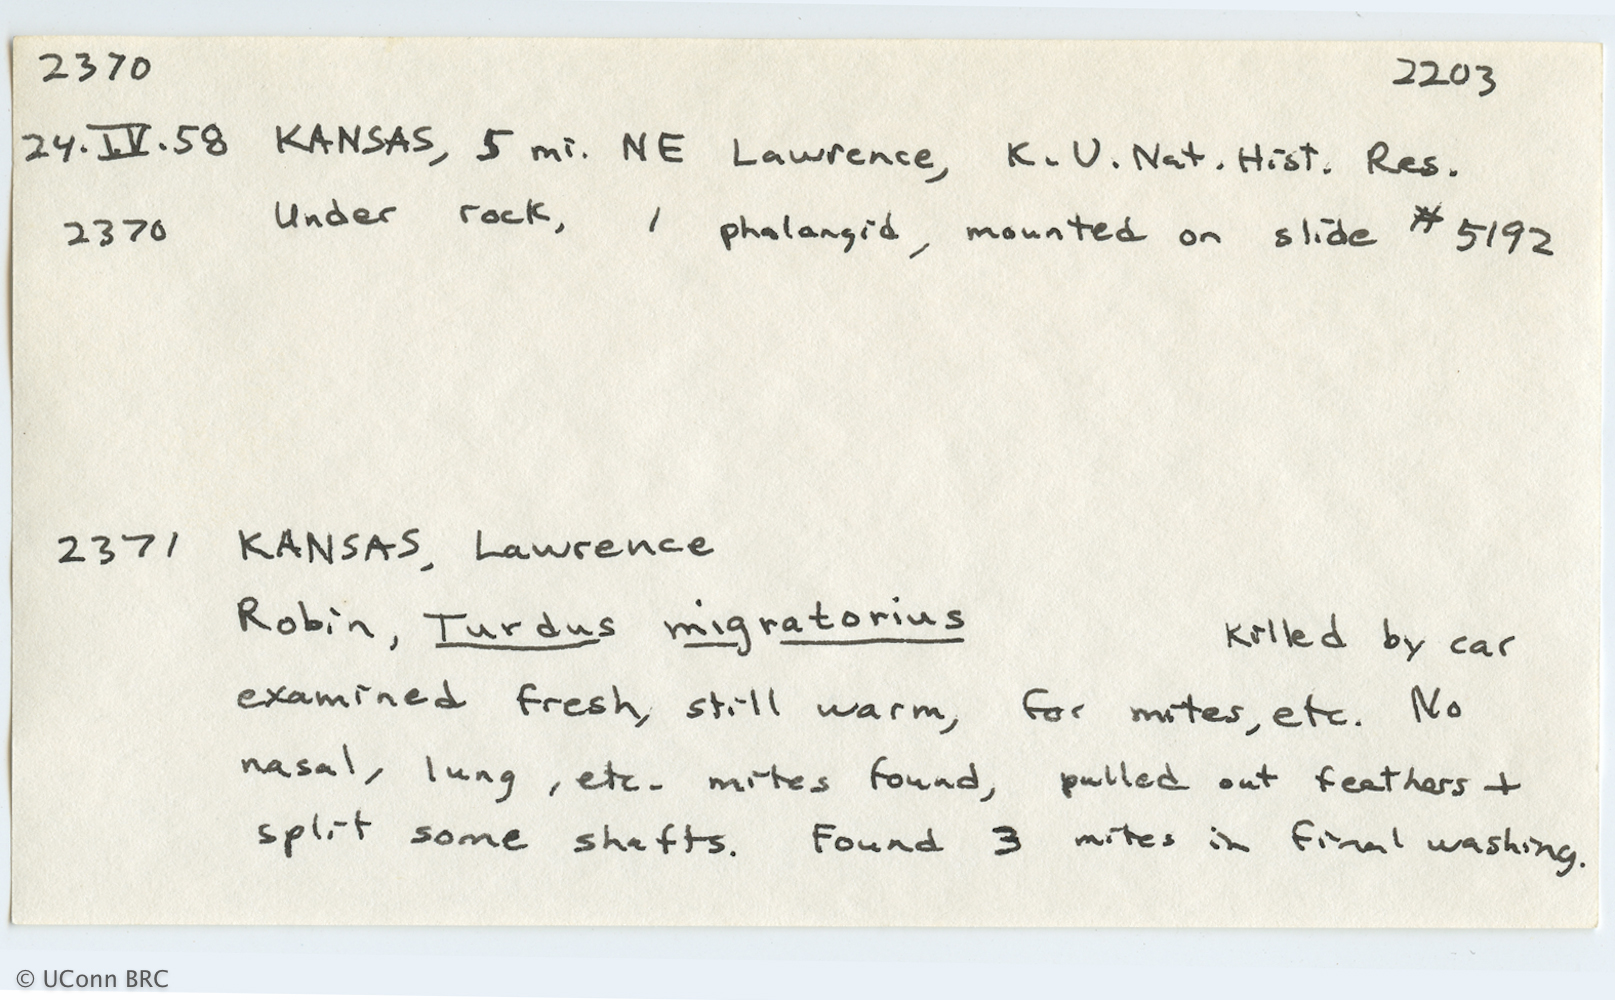 2370 2203
24.IV.58 KANSAS, 5 mi. NE Lawrence, K.U. Nat. Hist. Res.
2370 Under rock, 1 phalangid, mounted on slide #5192
2371 KANSAS, Lawrence
Robin, Turdus migratorius killed by car
examined fresh, still warm, for mites, etc. No
nasal, lung, etc. mites found, pulled out feathers +
split some shafts. Found 3 mites in final washing.
© UConn BRC